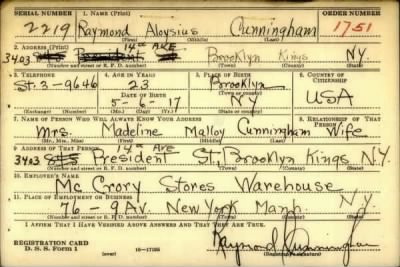 SERIAL NUMBER 1. NAME (Print) ORDER NUMBER
2219 Raymond Aloysius Cunningham 1751
(First) (Middle) (Last)
2. ADDRESS (Print) 14th AVE
3403 President Brooklyn Kings N.Y.
(Number and street or R. F. D. number) (Town) (County) (State)
3. TELEPHONE 4. AGE IN YEARS 5. PLACE OF BIRTH 6. COUNTRY OF CITIZENSHIP
St. 3-9646 23 Brooklyn
DATE OF BIRTH (Town or county)
5-6-17 NY USA
(Exchange) (No.) (Mo.) (Day) (Yr.) (State or country)
7. NAME OF PERSON WHO WILL ALWAYS KNOW YOUR ADDRESS 8. RELATIONSHIP OF THAT PERSON
Mrs. Madeline Malloy Cunningham Wife
(Mr., Mrs., Miss) (First) (Middle) (Last)
9. ADDRESS OF THAT PERSON 14th AVE
3403 President St, Brooklyn Kings N.Y.
(Number and street or R. F. D. number) (Town) (County) (State)
10. EMPLOYER'S NAME
Mc Crory Stores Warehouse
11. PLACE OF EMPLOYMENT OR BUSINESS
76 - 9 AV. New York Manh. N.Y.
(Number and street or R. F. D. number) (Town) (County) (State)
I AFFIRM THAT I HAVE VERIFIED ABOVE ANSWERS AND THAT THEY ARE TRUE.
REGISTRATION CARD
D. S. S. Form 1 (over) Raymond Cunningham
(Registrant's signature)